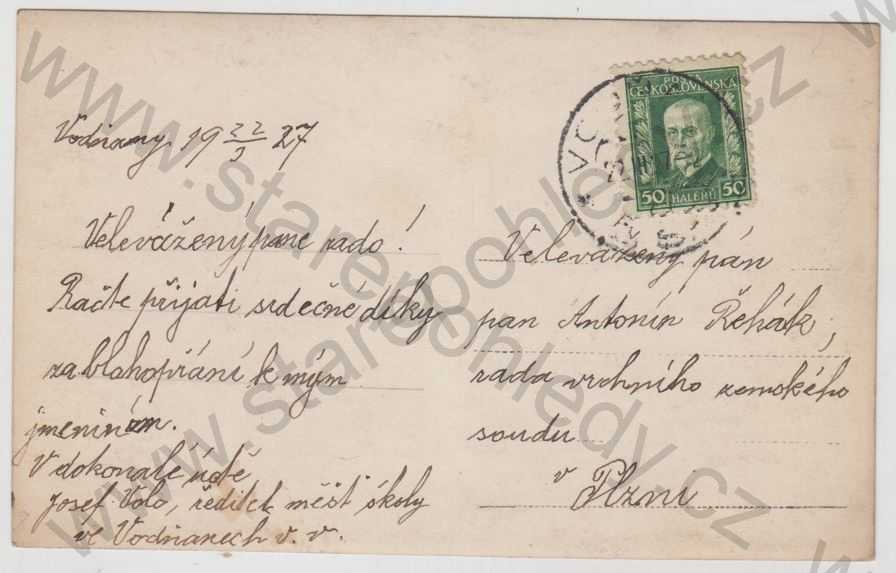 Vodňany 19 22/3 27
Velevážený pane rado!
Račte přijati srdečné díky
za blahopřání k mým
jmeninám.
V dokonalé úctě
Josef Volo, ředitel měšť. školy
ve Vodňanech v. v.
POŠTA
ČESKOSLOVENSKÁ
50 HALÉŘŮ 50
Velevážený pán
pan Antonín Řehák,
rada vrchního zemského
soudu
v Plzni
www.starepohledy.cz